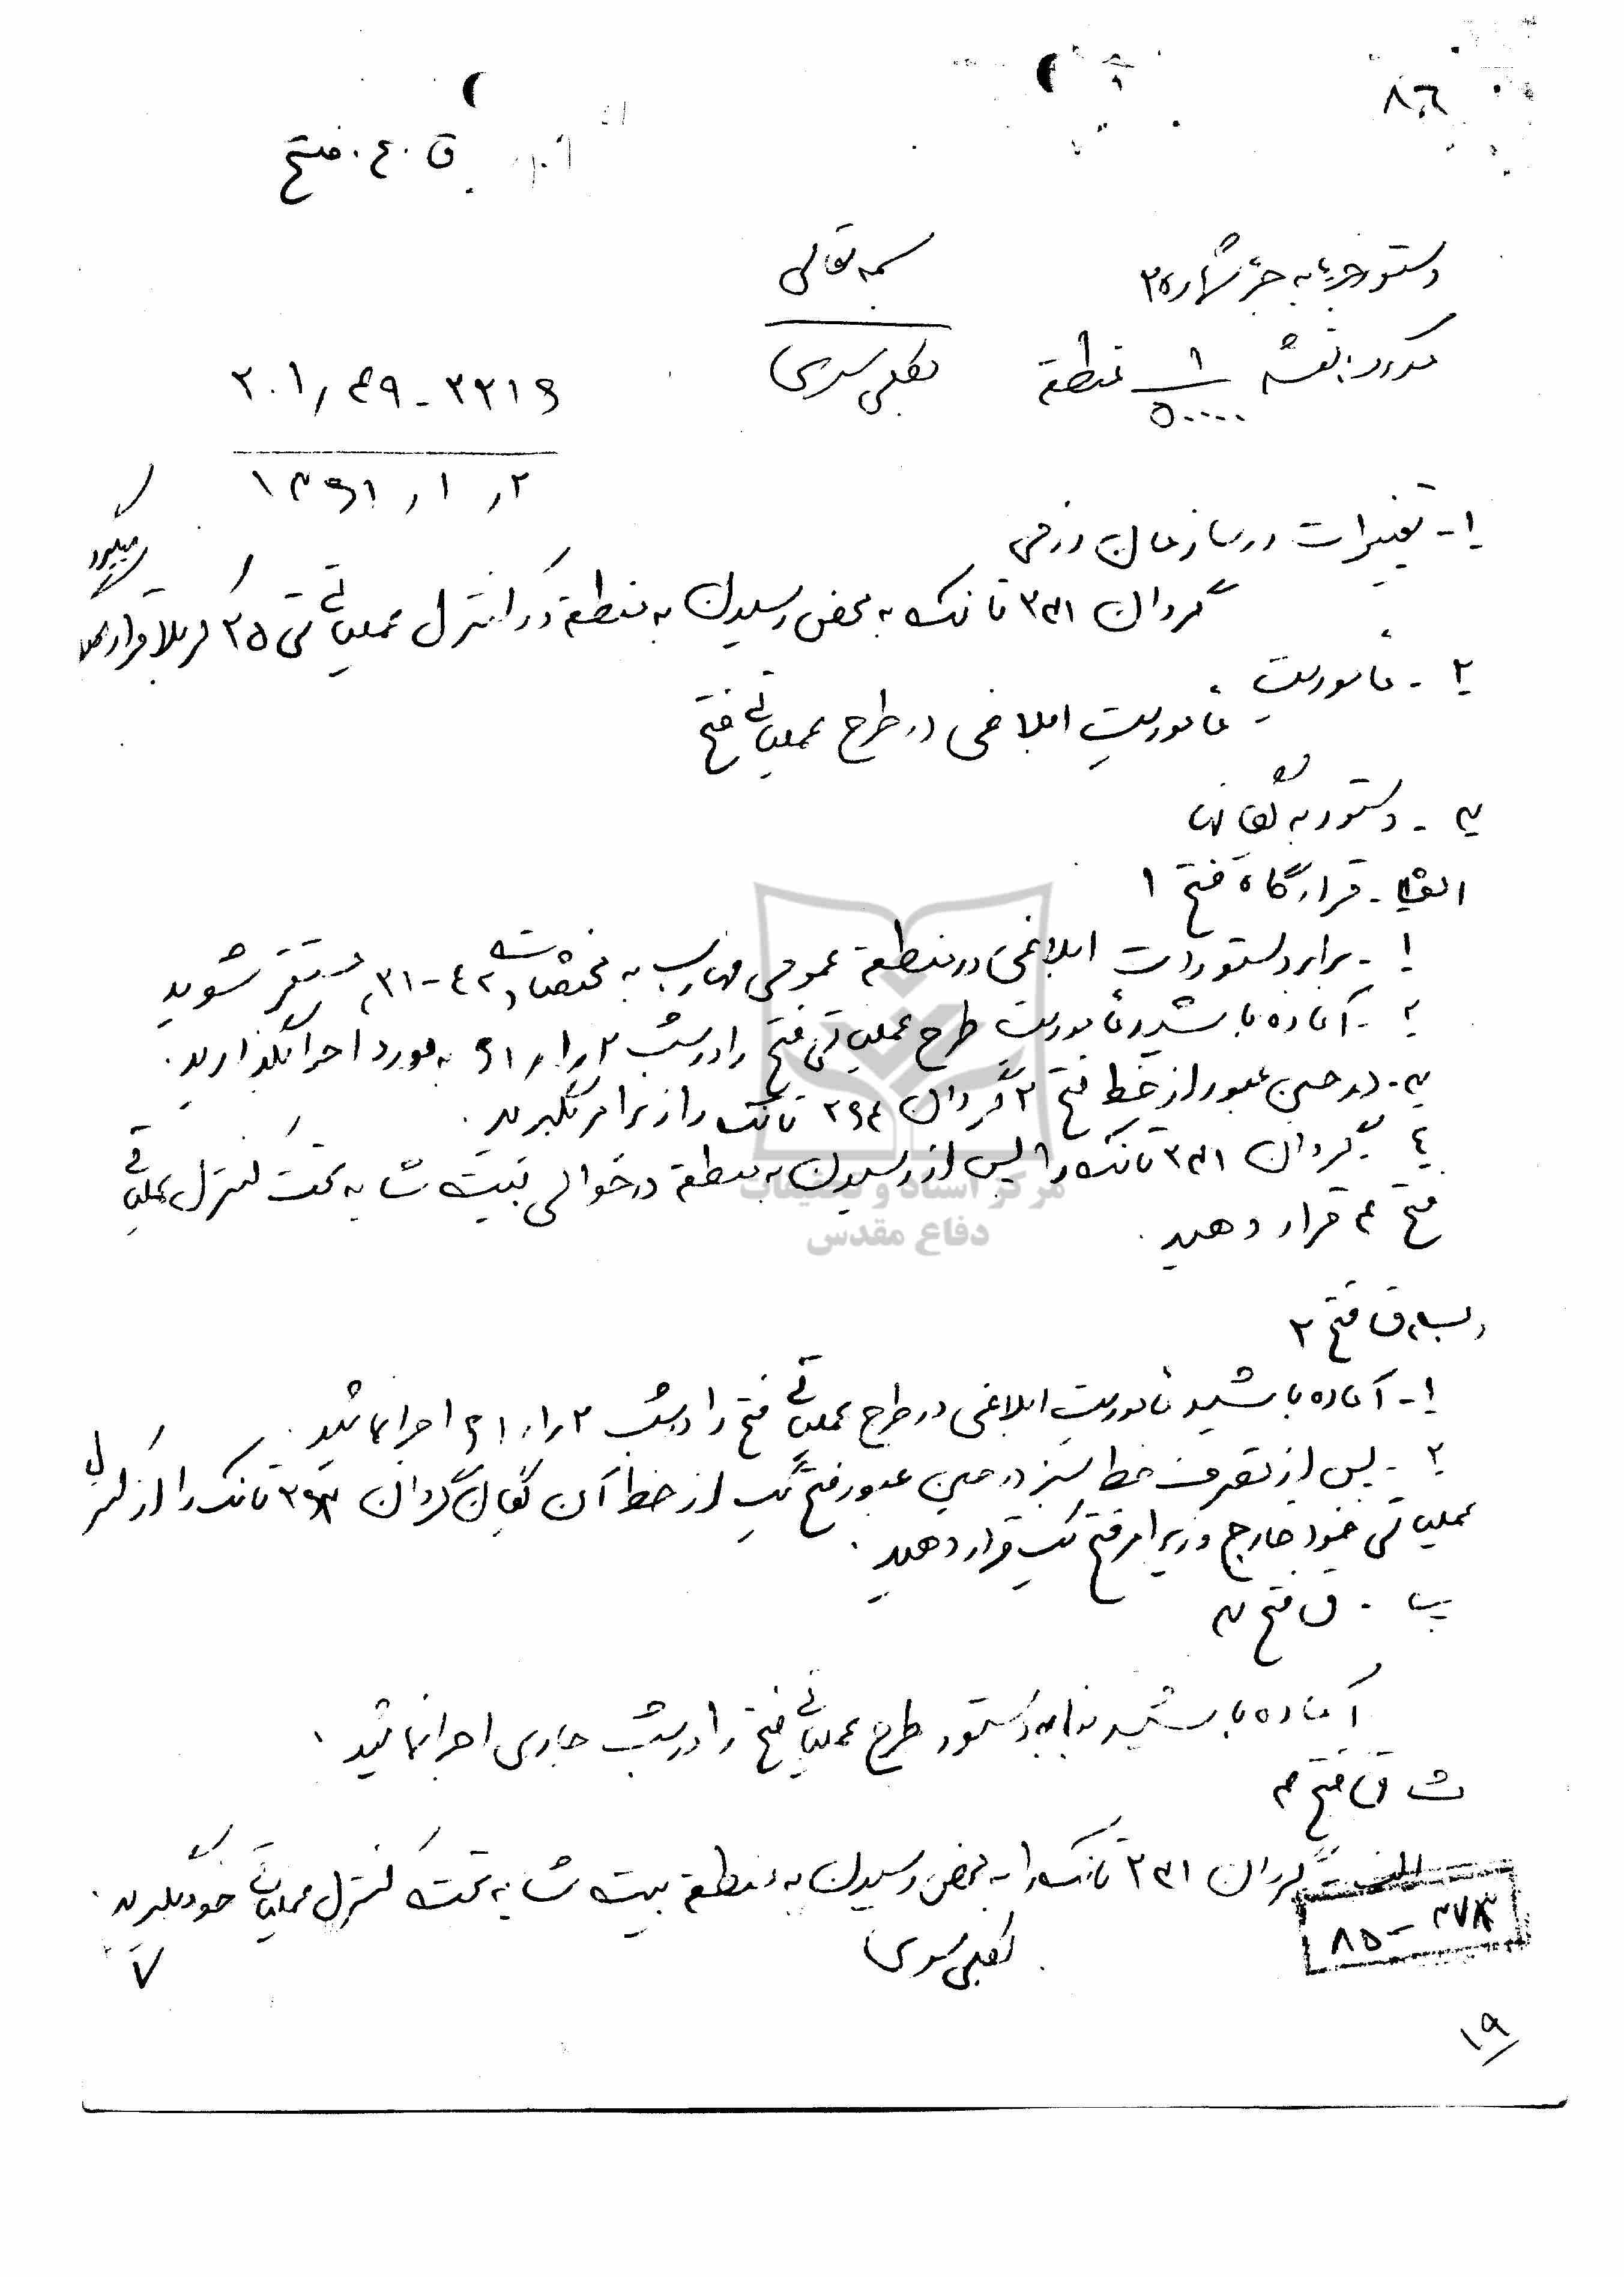 ۸۰۶
ق.ع. فتح
بسمه تعالی
بکلی سری
دستور جزء به جزء شماره ۲
مدرک: نقشه ۱/۵۰۰۰۰ منطقه
۲۰۱/۴۹-۲۲۱۶
۱۳۶۱/۱/۲
۱- تغییرات در سازمان رزمی
گردان ۲۳۱ تانک به محض رسیدن به منطقه در کنترل عملیاتی ۲۵ کربلا قرار میگیرد
۲- مأموریت
مأموریت ابلاغی در طرح عملیاتی فتح
۳- دستور به یگانها
الف- قرارگاه فتح ۱
۱- برابر دستورات ابلاغی در منطقه عمومی مناسب به مختصات ۴۲-۳۱ مستقر شوید
۲- آماده باشید مأموریت طرح عملیاتی فتح را در شب ۶۱/۱/۲ به مورد اجرا بگذارید.
۳- در حین عبور از خط فتح ۲ گردان ۲۶۳ تانک را زیر امر بگیرید.
۴- گردان ۲۳۱ تانک را پس از رسیدن به منطقه در حوالی تپه شاپه تحت کنترل عملیاتی
فتح ۴ قرار دهید.
ب- ق فتح ۲
۱- آماده باشید مأموریت ابلاغی در طرح عملیاتی فتح را در شب ۶۱/۱/۲ اجرا نمائید.
۲- پس از تصرف خط سبز در حین عبور فتح یک از خط آن یگان گردان ۲۶۳ تانک را از کنترل
عملیاتی خود خارج و زیر امر فتح یک قرار دهید.
پ- ق فتح ۳
آماده باشید بنا به دستور طرح عملیاتی فتح را در شب جاری اجرا نمائید.
ث ق فتح ۴
الف- گردان ۲۳۱ تانک را به محض رسیدن به منطقه تپه شاپه تحت کنترل عملیاتی خود بگیرید.
بکلی سری
۷
۸۵-۳۷۸۳
۱۹
مرکز اسناد و تحقیقات
دفاع مقدس